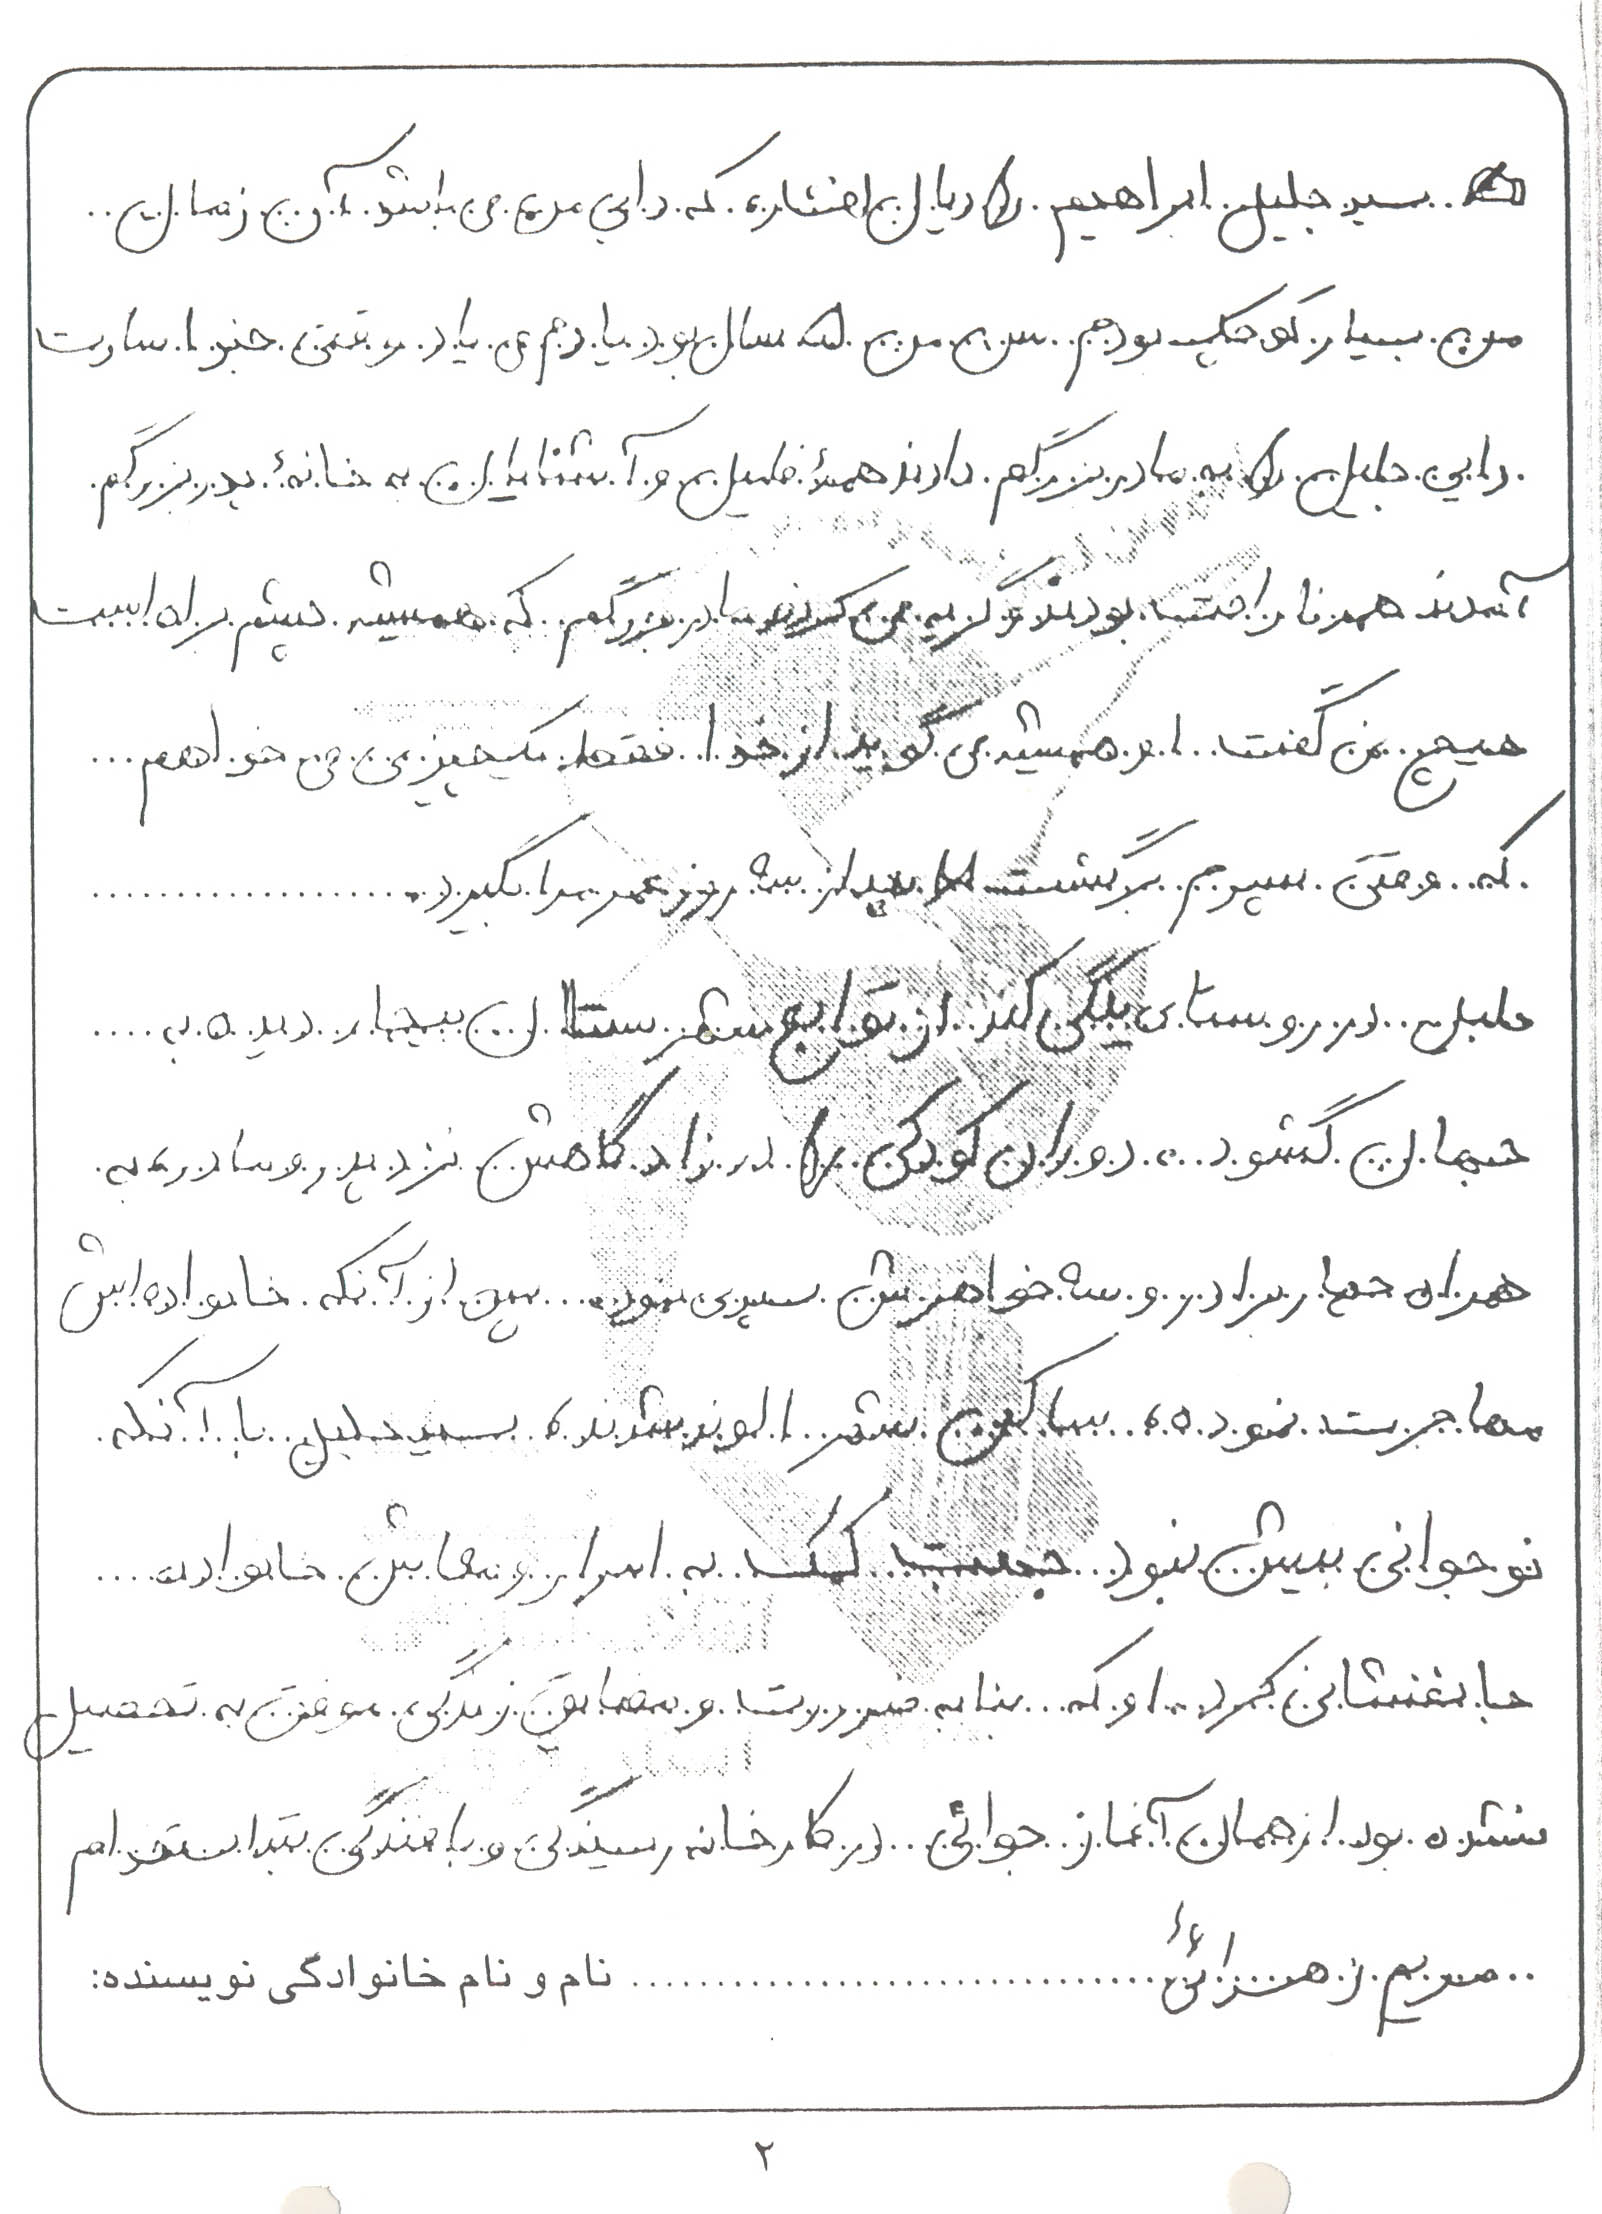 سید جلیل ابراهیم را دریان افشار، که دایی من می باشد. آن زمان
من بسیار کوچک بودم. سن من ۵ سال بود یادم می یاد وقتی خبر اسارت
دایی جلیل را به مادربزرگم دادند همهٔ فامیل و آشنایان به خانهٔ پدربزرگم
آمدند همه ناراحت بودند و گریه می کردند مادربزرگم که همیشه چشم براه است
هیچی نمی گفت. او همیشه می گوید از خدا فقط یکچیز می خواهم
که وقتی پسرم برگشت بعد از سه روز عمر مرا بگیرد.
جلیل در روستای یلگی کند از توابع شهرستان بیجار دیده به
جهان گشود، دوران کودکی را در زادگاهش نزد پدر و مادر، به
همراه چهار برادر و سه خواهرش سپری نمود. پس از آنکه خانواده اش
مهاجرت نموده، ساکن شهر الوند شدند، سید جلیل با آنکه
نوجوانی بیش نبود جهت کمک به امرار و معاش خانواده
جانفشانی کرد. او که بنا به ضرورت و مضایق زندگی، موفق به تحصیل
نشده بود از همان آغاز جوانی در کارخانه ریسندگی و بافندگی به استخدام
مریم زهرائی نام و نام خانوادگی نویسنده:
۲